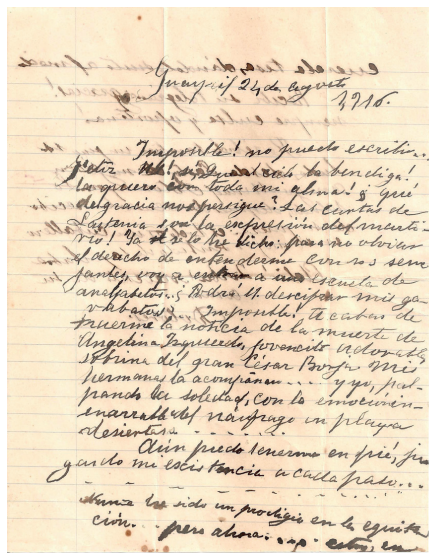 Guayaquil 24 de agosto
1916.
Imposible! no puedo escribir...
la bendiga!
la quiero con toda mi alma! ¿ qué
desgracia nos persigue? Las cartas de
son la expresión del marti-
rio! Ya se lo he dicho: para no olvidar
el derecho de entenderme con mis seme
jantes, voy a entrar a una escuela de
analfabetos. ¿ Podrá U. descifrar mis ga-
rabatos? Imposible! Acabas de
traerme la noticia de la muerte de
Angelina Izquierdo, jovencita adorable,
sobrina del gran César Borja Mis
hermanas la acompañan.... y yo, pal-
pando la soledad, con la emoción in-
enarrable del náufrago en playa
desierta
Aún puedo tenerme en pié, ju
gando mi existencia a cada paso...
Nunca he sido un prodigio en la equita
ción... pero ahora..... estoy en